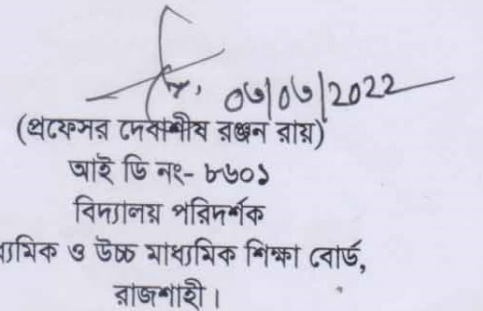 ০৬/০৬/2022
(প্রফেসর দেবাশীষ রঞ্জন রায়)
আই ডি নং- ৮৬০১
বিদ্যালয় পরিদর্শক
মাধ্যমিক ও উচ্চ মাধ্যমিক শিক্ষা বোর্ড,
রাজশাহী।